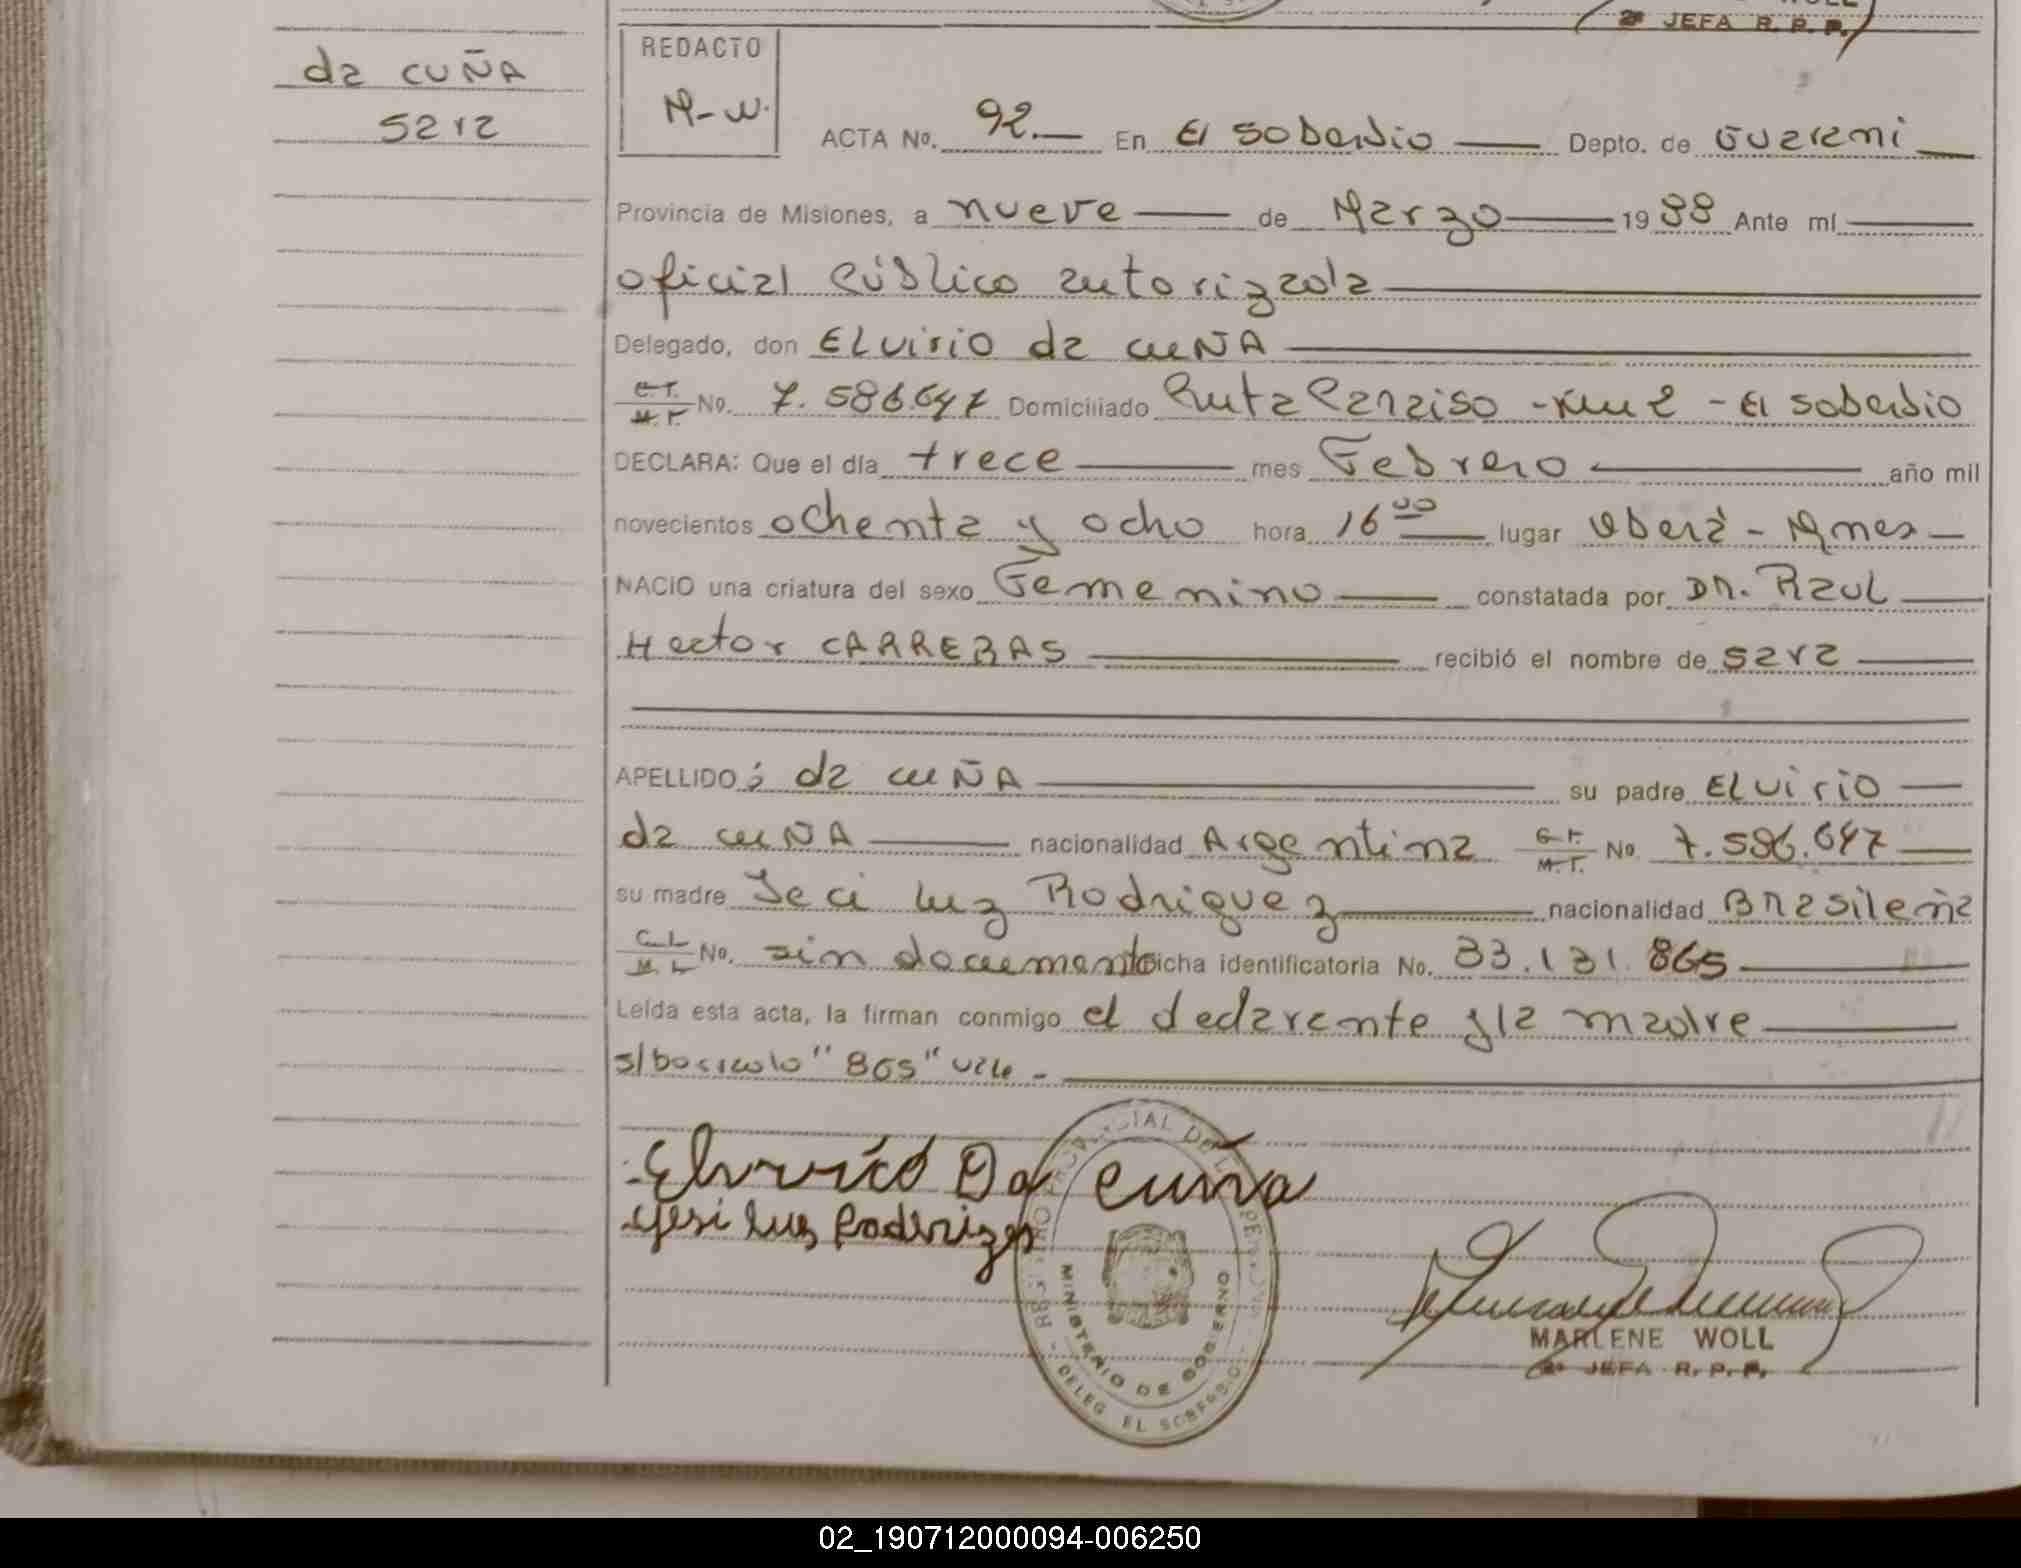 2ª JEFA R. P. P.
da CUÑA
Sara
REDACTO
M-W.
ACTA No. 92.— En El Soberbio — Depto. de Guarani —
Provincia de Misiones, a nueve — de Marzo — 19 88 Ante mí —
oficial Público autorizada —
Delegado, don ELvirio da CUÑA —
C.I. M.I. No. 7.586.647 Domiciliado Ruta Paraiso - Km 2 - El Soberbio
DECLARA: Que el día trece — mes Febrero — año mil
novecientos ochenta y ocho hora 16 00 — lugar Oberá - Mnes —
NACIO una criatura del sexo Femenino — constatada por DR. Raul —
Hector CARRERAS — recibió el nombre de Sara —
APELLIDO: da CUÑA — su padre ELvirio —
da CUÑA — nacionalidad Argentina C.I. M.I. No 7.586.647 —
su madre Jeci Luz Rodriguez — nacionalidad Brasileña
C.I. M.I. No. sin documento ficha identificatoria No. 33.131.865 —
Leída esta acta, la firman conmigo el declarante y la madre —
s/borrado "865" vale - —
Elvirio Da Cuña
Yesi Luz Roderizes
REGISTRO PROVINCIAL DE LAS PERSONAS - DELEG. EL SOBERBIO -
MINISTERIO DE GOBIERNO
MARLENE WOLL
2ª JEFA R. P. P.
02_190712000094-006250